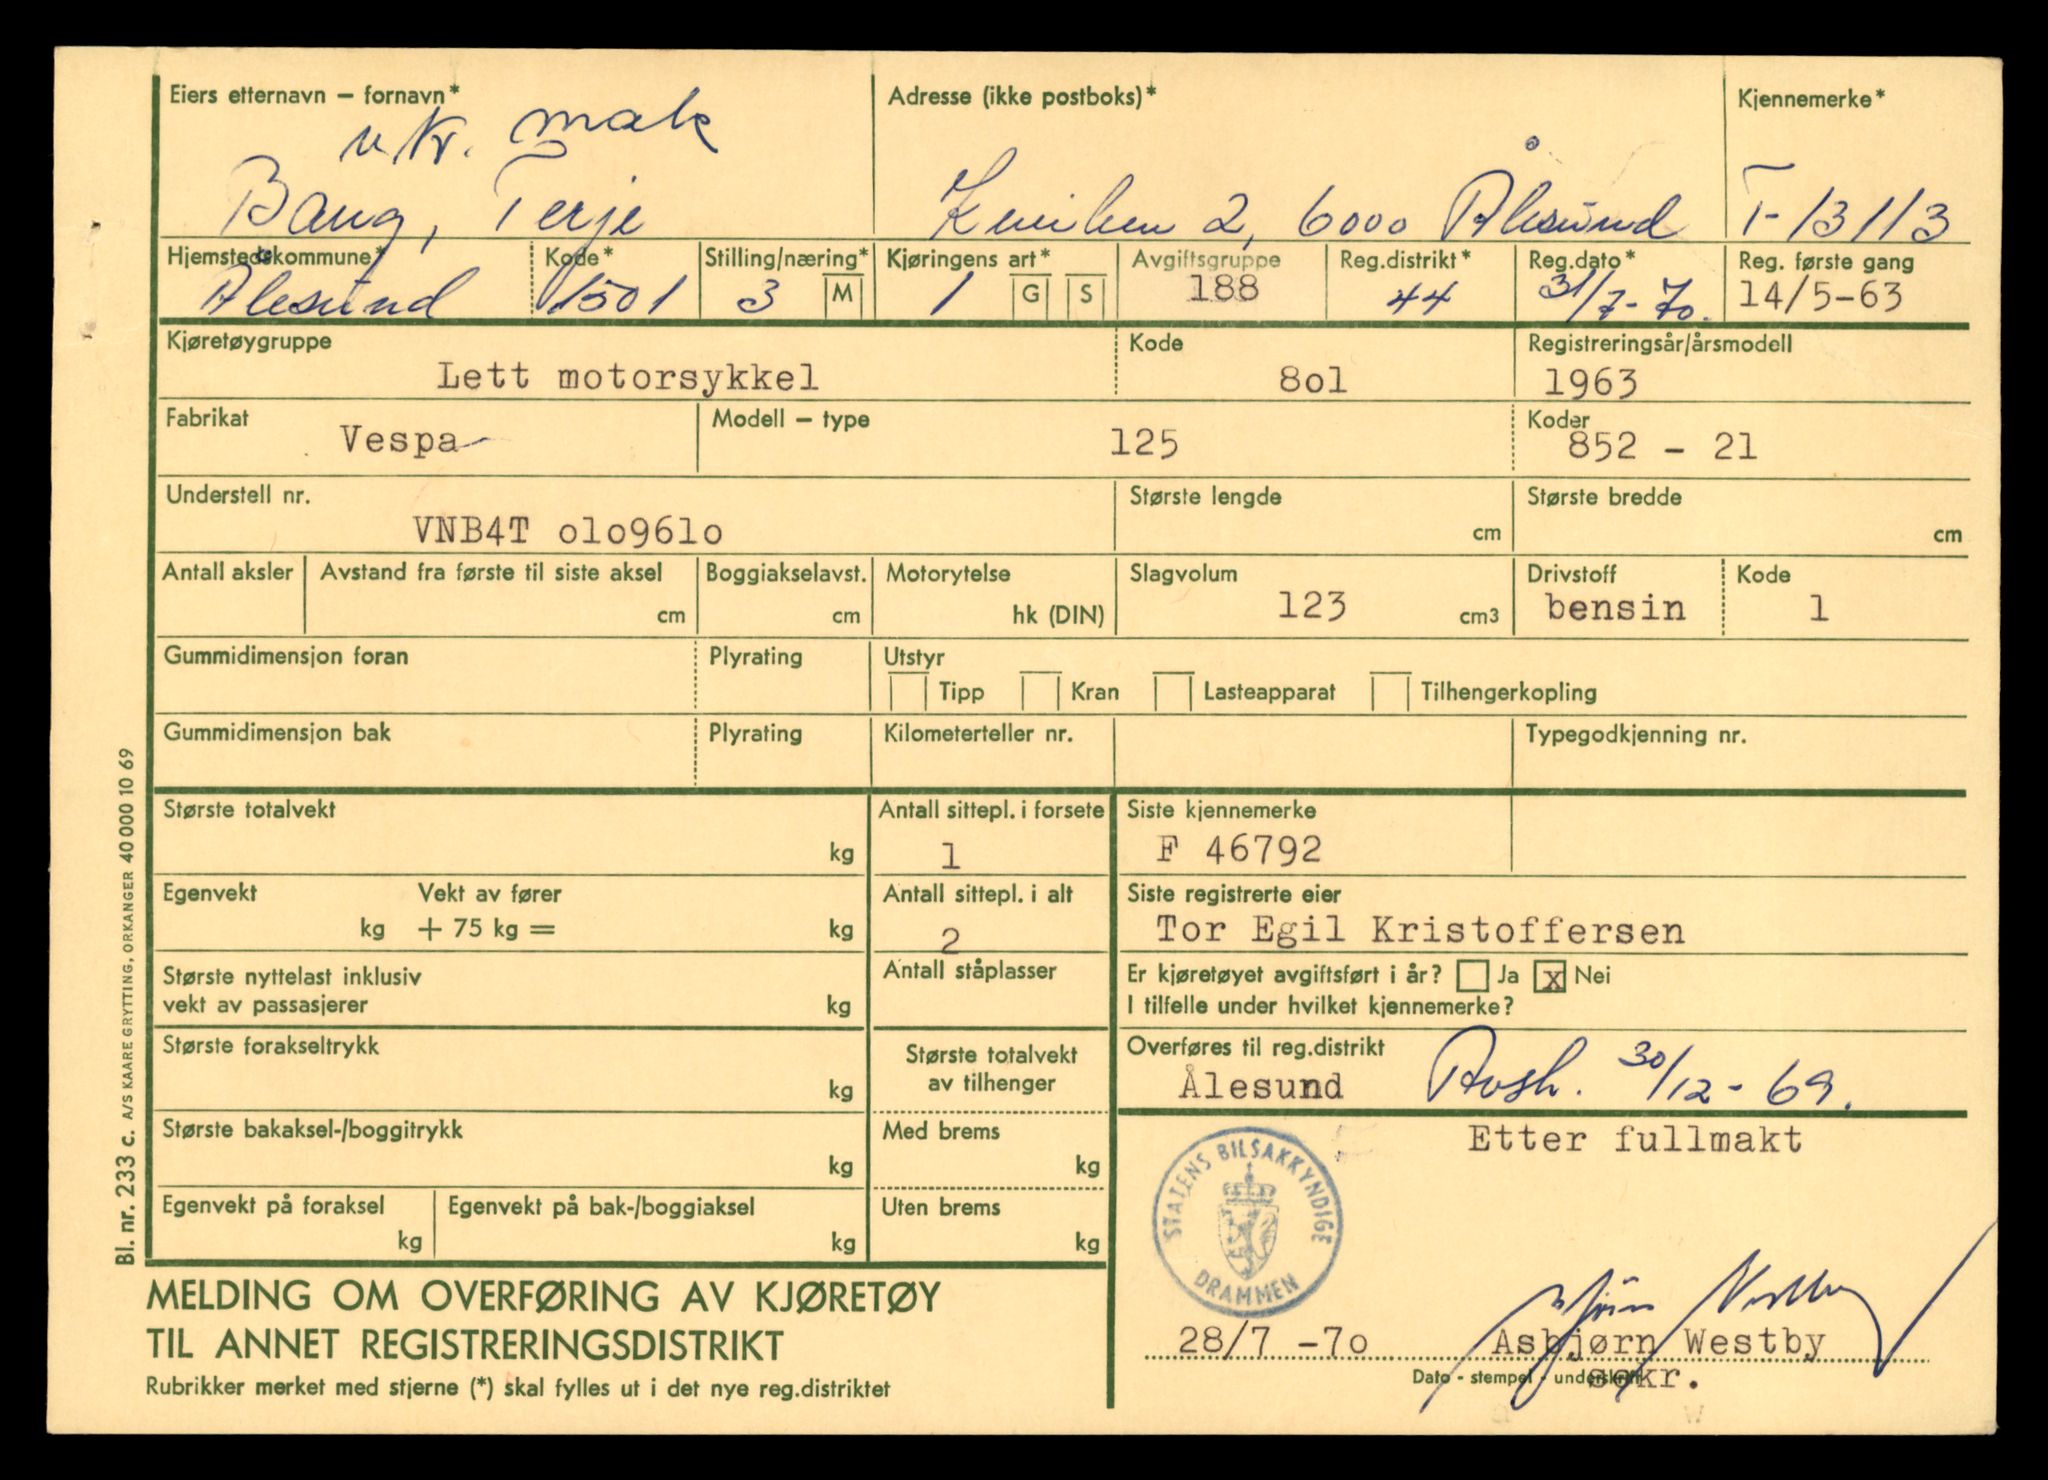 Eiers etternavn – fornavn*
Adresse (ikke postboks)*
Kjennemerke*
mak
Bang, Terje
2, 6000 Ålesund
T-13113
Hjemstedskommune*
Kode*
Stilling/næring*
Kjøringens art*
Avgiftsgruppe
Reg.distrikt*
Reg.dato*
Reg. første gang
Ålesund
1501
3
M
1
G
S
188
44
31/7-70.
14/5-63
Kjøretøygruppe
Kode
Registreringsår/årsmodell
Lett motorsykkel
8o1
1963
Fabrikat
Modell – type
Koder
Vespa
125
852 - 21
Understell nr.
Største lengde
Største bredde
VNB4T olo961o
cm
cm
Antall aksler
Avstand fra første til siste aksel
Boggiakselavst.
Motorytelse
Slagvolum
Drivstoff
Kode
cm
cm
hk (DIN)
123
cm3
bensin
1
Gummidimensjon foran
Plyrating
Utstyr
Tipp
Kran
Lasteapparat
Tilhengerkopling
Gummidimensjon bak
Plyrating
Kilometerteller nr.
Typegodkjenning nr.
Største totalvekt
kg
Antall sittepl. i forsete
1
Siste kjennemerke
F 46792
Egenvekt
Vekt av fører
kg + 75 kg =
kg
Antall sittepl. i alt
2
Siste registrerte eier
Tor Egil Kristoffersen
Største nyttelast inklusiv
vekt av passasjerer
kg
Antall ståplasser
Er kjøretøyet avgiftsført i år? Ja x Nei
I tilfelle under hvilket kjennemerke?
Største forakseltrykk
kg
Største totalvekt
av tilhenger
Overføres til reg.distrikt
Ålesund
Avsk. 30/12-69.
Største bakaksel-/boggitrykk
kg
Med brems
kg
Etter fullmakt
Egenvekt på foraksel
kg
Egenvekt på bak-/boggiaksel
kg
Uten brems
kg
STATENS BILSAKKYNDIGE
DRAMMEN
MELDING OM OVERFØRING AV KJØRETØY
TIL ANNET REGISTRERINGSDISTRIKT
Rubrikker merket med stjerne (*) skal fylles ut i det nye reg.distriktet
28/7 -7o
Asbjørn Westby
Dato - stempel - underskrift
sekr.
Bl. nr. 233 c. A/S KAARE GRYTTING, ORKANGER 40 000 10 69